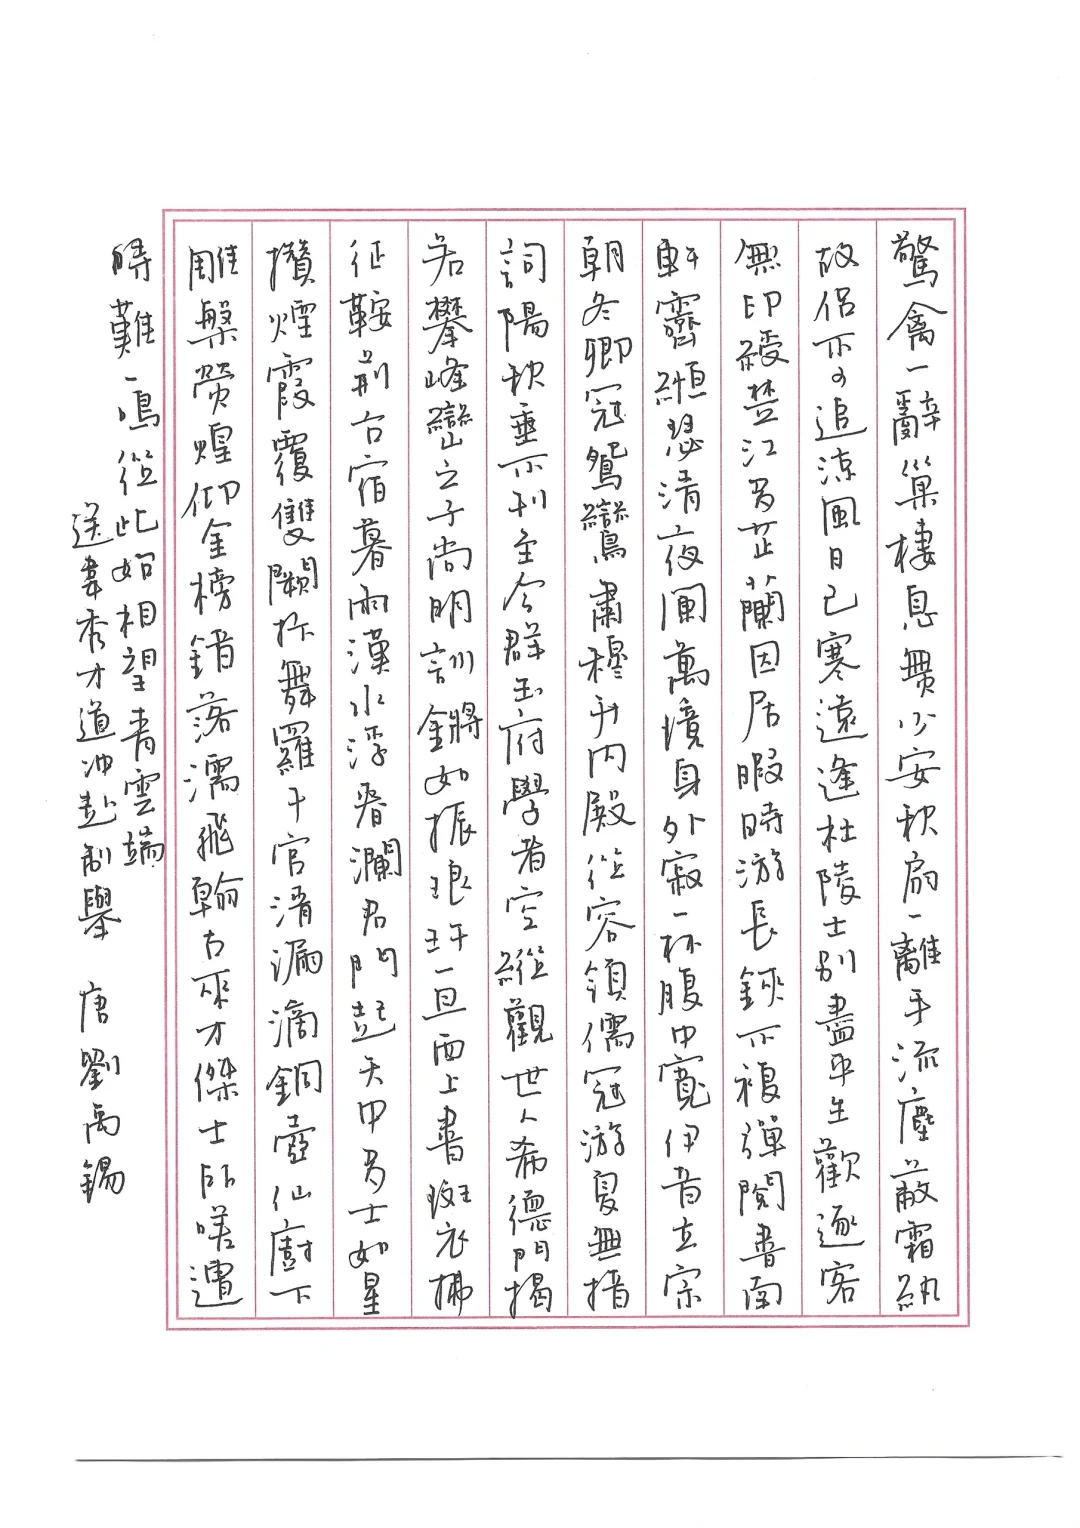 驚禽一辭巢棲息無少安秋扇一離手流塵蔽霜紈
故侶不可追涼風日已寒遠逢杜陵士別盡平生歡逐客
無印綬楚江多芷蘭因居暇時游長鋏不複彈閱書南
軒霽縆瑟清夜闌萬境身外寂一杯腹中寬伊昔立宗
朝冬卿冠鴛鸞肅穆升內殿從容領儒冠游夏無措
詞陽秋垂不刊至今群玉府學者空縱觀世人希德門揭
若攀峰巒之子尚明訓鏘如振琅玕一旦西上書斑衣拂
征鞍荊台宿暮雨漢水浮春瀾君門起天中多士如星
攢煙霞覆雙闕抃舞羅千官清漏滴銅壺仙廚下
雕槃熒煌仰金榜錯落濡飛翰古來才傑士所嗟遭
時難一鳴從此始相望青雲端
送韋秀才道沖赴制舉 唐 劉禹錫